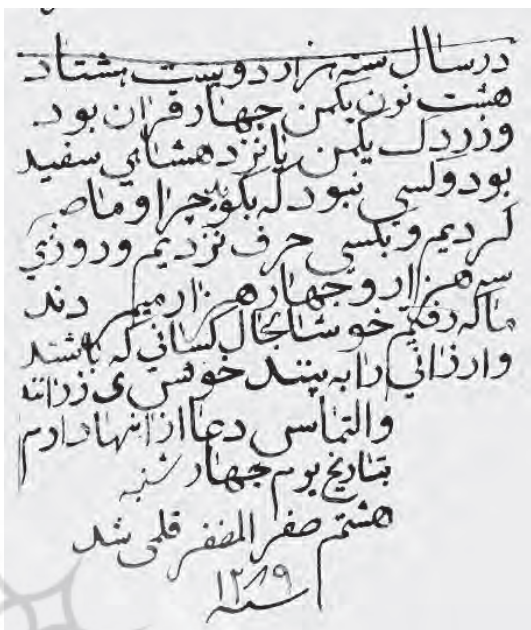 در سال سنه هزار دویست هشتاد
هشت نون یکمن جهار قران بود
و زردک یکمن پانزده شاهی سفید
بود و کسی نبود که بکوید چرا و ما صبر
کردیم و بکسی حرف نزدیم و روزی
سه هزار و جهار هزار میمردند
ما که رفتیم خوشابحال کسانی که باشند
و ارزانی را به بینند خوش گذرانند
والتماس دعا از انها دارم
بتاریخ یوم جهارشنبه
هشتم صفر المظفر قلمی شد
سنه ۱۲۸۹